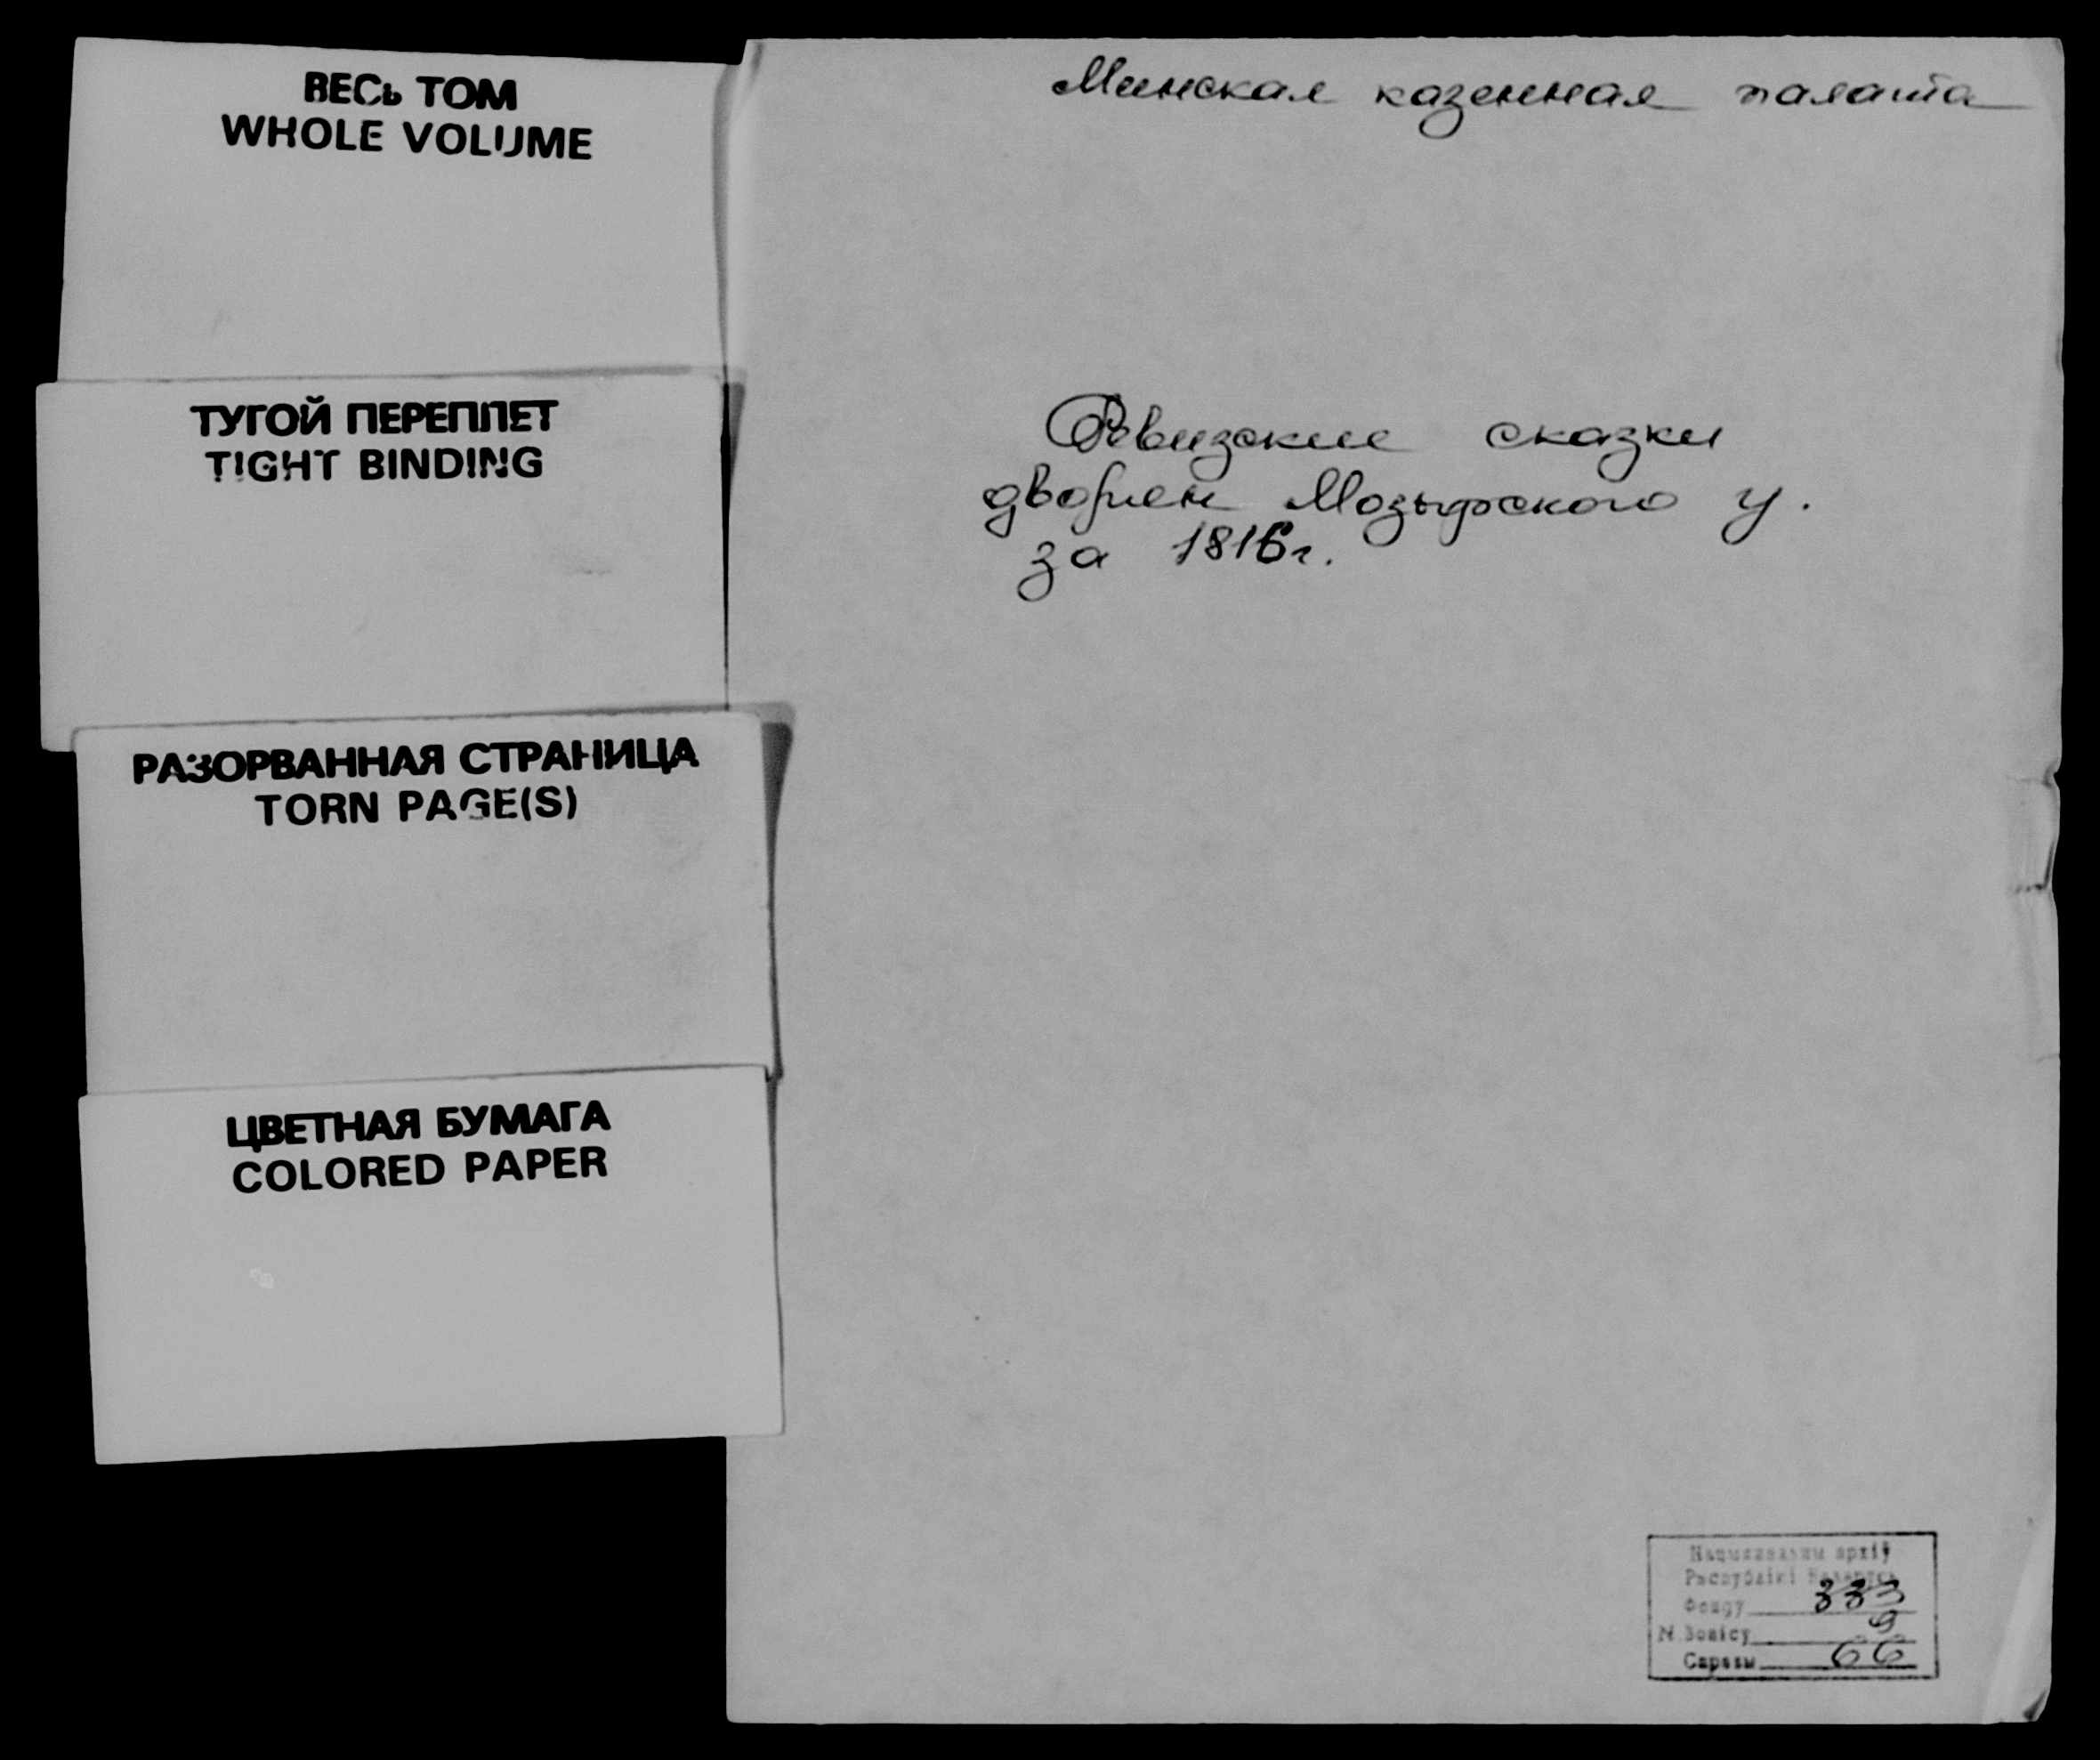 ВЕСЬ ТОМ
WHOLE VOLUME
ТУГОЙ ПЕРЕПЛЕТ
TIGHT BINDING
РАЗОРВАННАЯ СТРАНИЦА
TORN PAGE(S)
ЦВЕТНАЯ БУМАГА
COLORED PAPER
Минская казенная палата
Ревизские сказки
дворян Мозырского у.
за 1816г.
Нацыянальны архіў
Рэспублікі Беларусь
Фонду 333
N. Вопісу 9
Справы 66